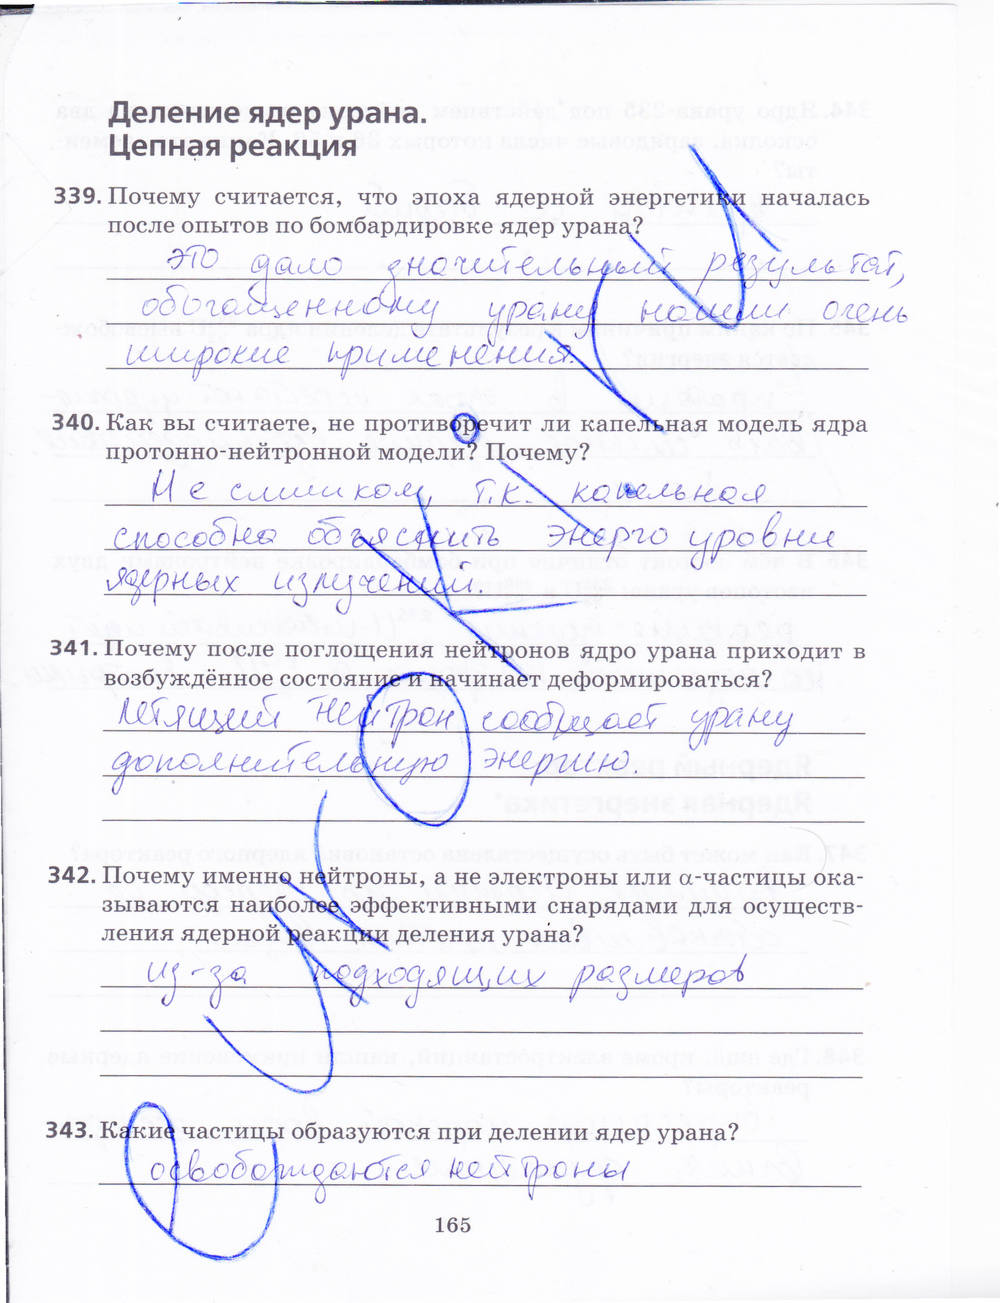 Деление ядер урана.
Цепная реакция
339. Почему считается, что эпоха ядерной энергетики началась
после опытов по бомбардировке ядер урана?
это дало значительный результат,
обогащенному урану нашли очень
широкие применения.
340. Как вы считаете, не противоречит ли капельная модель ядра
протонно-нейтронной модели? Почему?
Не слишком, т.к. капельная
способна объяснить энерго уровни
ядерных излучений.
341. Почему после поглощения нейтронов ядро урана приходит в
возбуждённое состояние и начинает деформироваться?
Летящий нейтрон сообщает урану
дополнительную энергию.
342. Почему именно нейтроны, а не электроны или α-частицы ока-
зываются наиболее эффективными снарядами для осуществ-
ления ядерной реакции деления урана?
из-за подходящих размеров
343. Какие частицы образуются при делении ядер урана?
освобождаются нейтроны
165